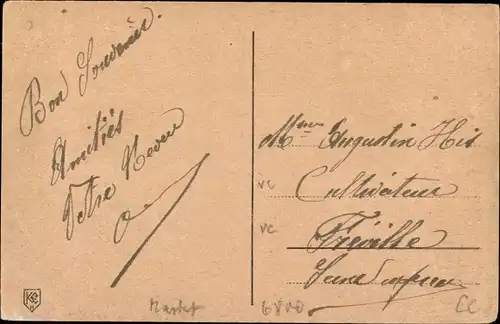 Bon Souvenir.
Amitiés
Votre Neveu
Mme Augustin His
vc
Cultivateur
vc
Fréville
Seine Infre
6800
CC